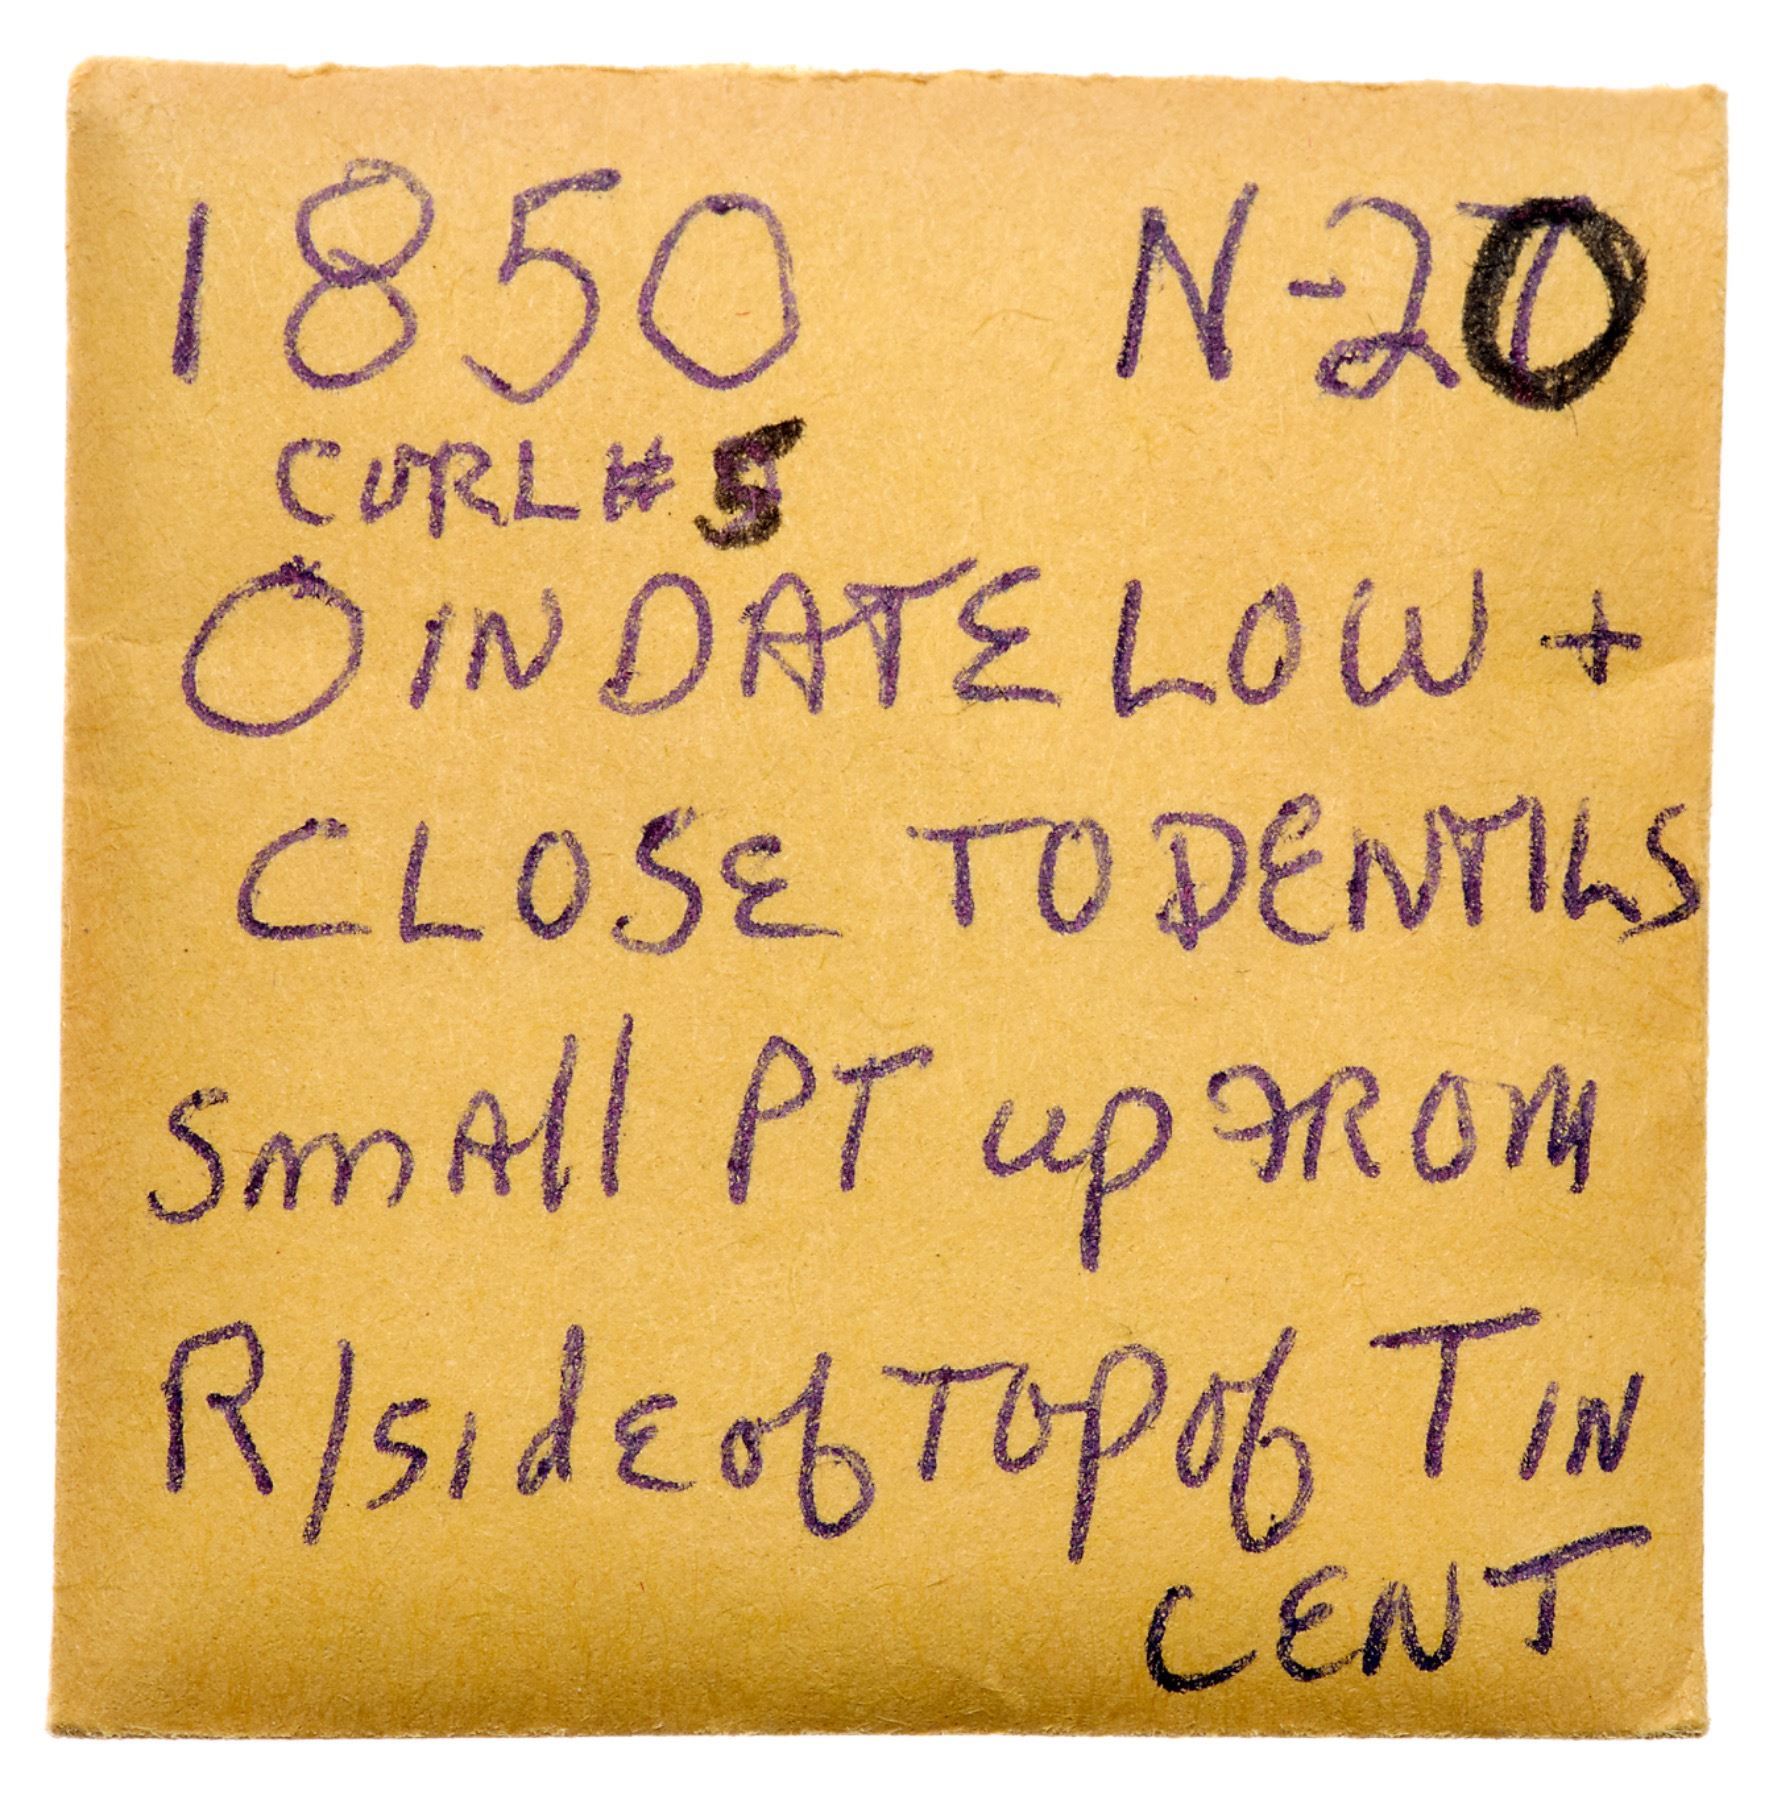 1850 N-20
CURL # 5
O IN DATE LOW +
CLOSE TO DENTILS
SmAll PT up FROM
R/sidE of TOP of T IN
CENT